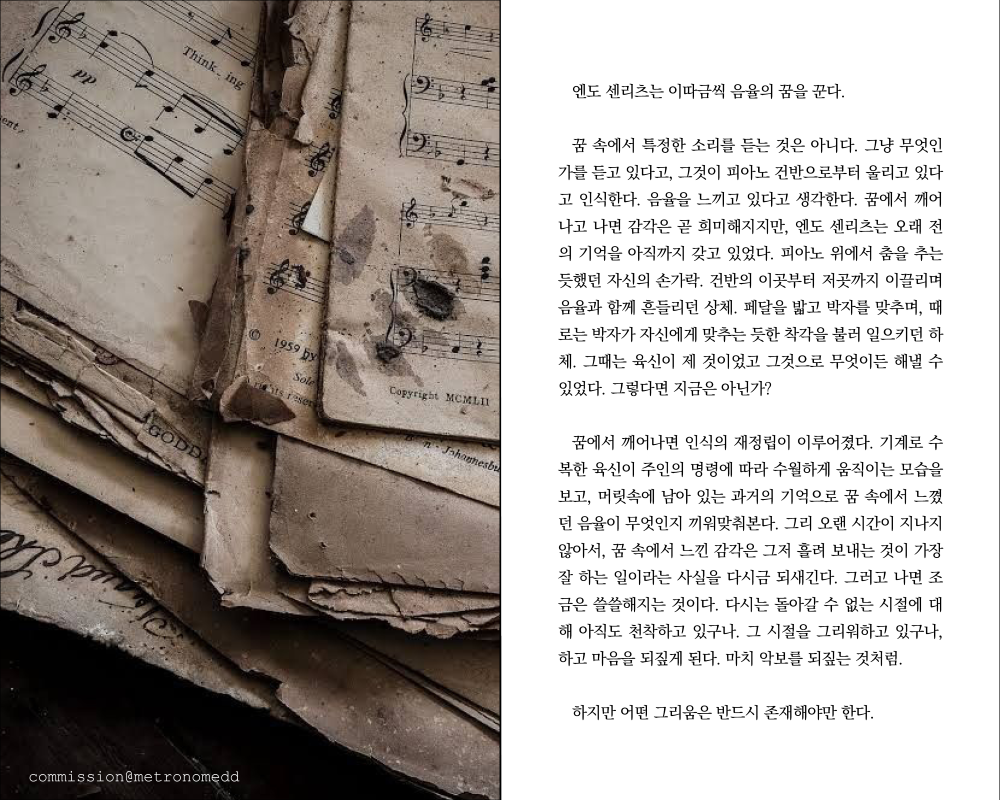 Think - ing
pp
ent.
© 1959 by
Sole
Copyright MCMLII
Johannesbu
GODD
commission@metronomedd
엔도 센리츠는 이따금씩 음율의 꿈을 꾼다.
꿈 속에서 특정한 소리를 듣는 것은 아니다. 그냥 무엇인
가를 듣고 있다고, 그것이 피아노 건반으로부터 울리고 있다
고 인식한다. 음율을 느끼고 있다고 생각한다. 꿈에서 깨어
나고 나면 감각은 곧 희미해지지만, 엔도 센리츠는 오래 전
의 기억을 아직까지 갖고 있었다. 피아노 위에서 춤을 추는
듯했던 자신의 손가락. 건반의 이곳부터 저곳까지 이끌리며
음율과 함께 흔들리던 상체. 페달을 밟고 박자를 맞추며, 때
로는 박자가 자신에게 맞추는 듯한 착각을 불러 일으키던 하
체. 그때는 육신이 제 것이었고 그것으로 무엇이든 해낼 수
있었다. 그렇다면 지금은 아닌가?
꿈에서 깨어나면 인식의 재정립이 이루어졌다. 기계로 수
복한 육신이 주인의 명령에 따라 수월하게 움직이는 모습을
보고, 머릿속에 남아 있는 과거의 기억으로 꿈 속에서 느꼈
던 음율이 무엇인지 끼워맞춰본다. 그리 오랜 시간이 지나지
않아서, 꿈 속에서 느낀 감각은 그저 흘려 보내는 것이 가장
잘 하는 일이라는 사실을 다시금 되새긴다. 그러고 나면 조
금은 쓸쓸해지는 것이다. 다시는 돌아갈 수 없는 시절에 대
해 아직도 천착하고 있구나. 그 시절을 그리워하고 있구나,
하고 마음을 되짚게 된다. 마치 악보를 되짚는 것처럼.
하지만 어떤 그리움은 반드시 존재해야만 한다.